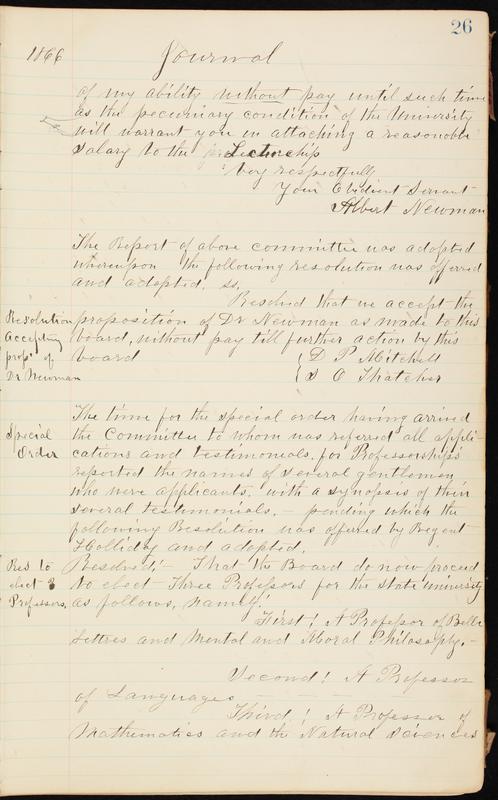 26
1866 Journal
of my ability without pay until such time
as the pecuniary condition of the University
will warrant you in attaching a reasonable
Salary to the Lectureship
Very respectfully
Your Obidient Servant
Albert Newman
The Report of above committee was adopted
whereupon the following resolution was offered
and adopted. ss,
Resolved that we accept the
Resolution
Accepting
prop of
Dr Newman
proposition of Dr Newman as made to this
board, without pay till further action by this
board
D P Mitchell
S O Thatcher
Special
Order
The time for the special order having arrived
the Committee to whom was referred all appli-
cations and testimonials for Professorships
reported the names of several gentlemen
who were applicants. with a synopsis of their
several testimonials. - pending which the
following Resolution was offered by Regent
Holliday and adopted.
Res to
elect 3
Professors.
Resolved; - That the Board do now proceed
to elect Three Professors for the State University
as follows, namely:
First! A Professor of Belle
Lettres and Mental and Moral Philosophy. -
Second! A Professor
of Languages
Third! A Professor of
Mathematics and the Natural Sciences